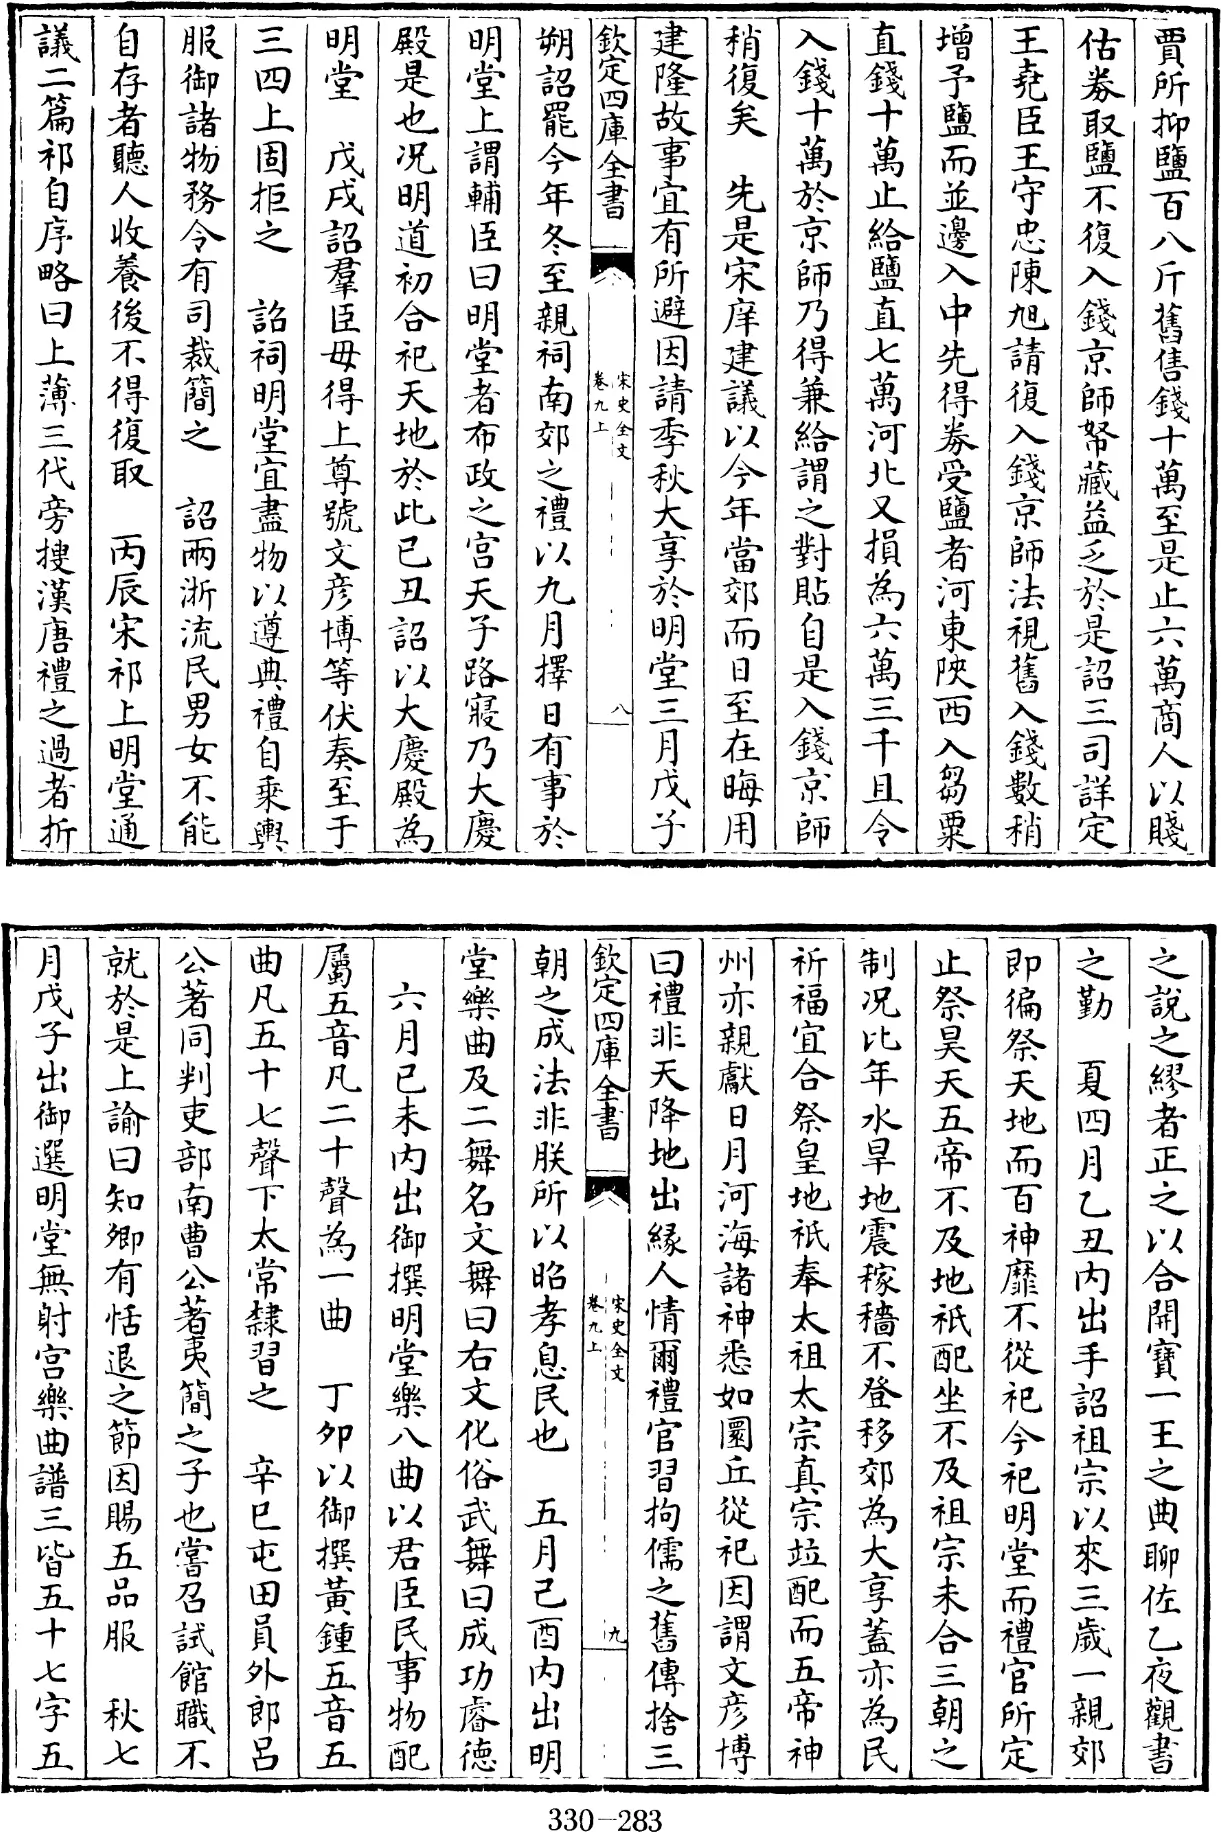 賈所抑鹽百八斤舊售錢十萬至是止六萬商人以賤
估劵取鹽不復入錢京師帑藏益乏於是詔三司詳定
王堯臣王守忠陳旭請復入錢京師法視舊入錢數稍
增予鹽而並邊入中先得劵受鹽者河東陜西入芻粟
直錢十萬止給鹽直七萬河北又損為六萬三千且令
入錢十萬於京師乃得兼給謂之對貼自是入錢京師
稍復矣　先是宋庠建議以今年當郊而日至在晦用
建隆故事宜有所避因請季秋大享於明堂三月戊子
欽定四庫全書
宋史全文
卷九上
八
朔詔罷今年冬至親祠南郊之禮以九月擇日有事於
明堂上謂輔臣曰明堂者布政之宮天子路寢乃大慶
殿是也况明道初合祀天地於此已丑詔以大慶殿為
明堂　戊戌詔羣臣毋得上尊號文彦博等伏奏至于
三四上固拒之　詔祠明堂宜盡物以遵典禮自乗輿
服御諸物務令有司裁簡之　詔兩浙流民男女不能
自存者聽人收養後不得復取　丙辰宋祁上明堂通
議二篇祁自序略曰上薄三代旁搜漢唐禮之過者折
之說之繆者正之以合開寶一王之典聊佐乙夜觀書
之勤　夏四月乙丑内出手詔祖宗以來三歲一親郊
即徧祭天地而百神靡不從祀今祀明堂而禮官所定
止祭昊天五帝不及地祇配坐不及祖宗未合三朝之
制况比年水旱地震稼穡不登移郊為大享蓋亦為民
祈福宜合祭皇地祇奉太祖太宗真宗竝配而五帝神
州亦親獻日月河海諸神悉如圜丘從祀因謂文彦博
曰禮非天降地出緣人情爾禮官習拘儒之舊傳捨三
欽定四庫全書
宋史全文
卷九上
九
朝之成法非朕所以昭孝息民也　五月己酉内出明
堂樂曲及二舞名文舞曰右文化俗武舞曰成功睿德
六月已未内出御撰明堂樂八曲以君臣民事物配
屬五音凡二十聲為一曲　丁夘以御撰黄鍾五音五
曲凡五十七聲下太常隸習之　辛巳屯田員外郎呂
公著同判吏部南曹公著夷簡之子也嘗召試館職不
就於是上諭曰知卿有恬退之節因賜五品服　秋七
月戊子出御選明堂無射宮樂曲譜三皆五十七字五
330-283